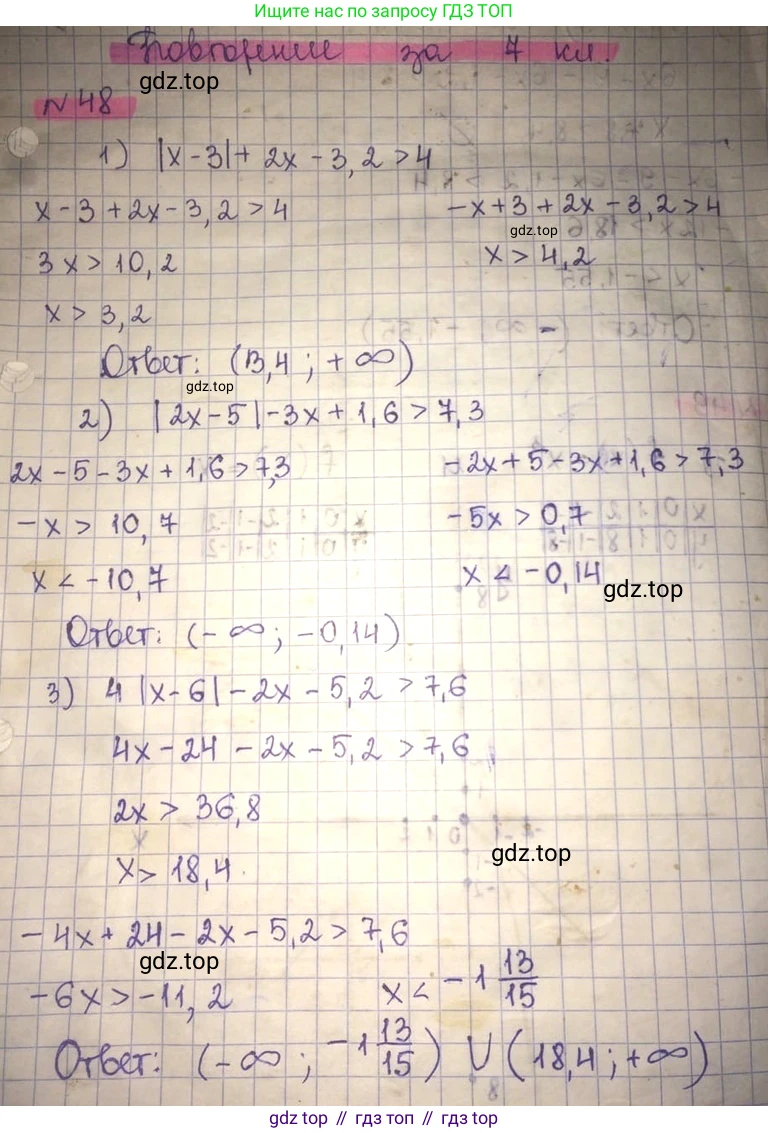 Ищите нас по запросу ГДЗ ТОП
Повторение за 7 кл.
gdz.top
№48
1) |x-3|+ 2x - 3,2 > 4
x - 3 + 2x - 3,2 > 4 -x+3 + 2x - 3,2 > 4
gdz.top
3x > 10,2 x > 4,2
x > 3,2
Ответ: (3,4 ; +∞)
gdz.top
2) |2x-5|-3x+1,6 > 7,3
2x-5-3x+1,6 > 7,3 -2x+5-3x+1,6 > 7,3
-x > 10,7 -5x > 0,7
x < -10,7 x < -0,14
gdz.top
Ответ: (-∞; -0,14)
3) 4|x-6|-2x-5,2 > 7,6
4x-24-2x-5,2 > 7,6
2x > 36,8
gdz.top
x > 18,4
-4x+24-2x-5,2 > 7,6
gdz.top
-6x > -11,2 x < -1 13/15
Ответ: (-∞; -1 13/15) ∪ (18,4; +∞)
gdz.top // гдз топ // gdz.top